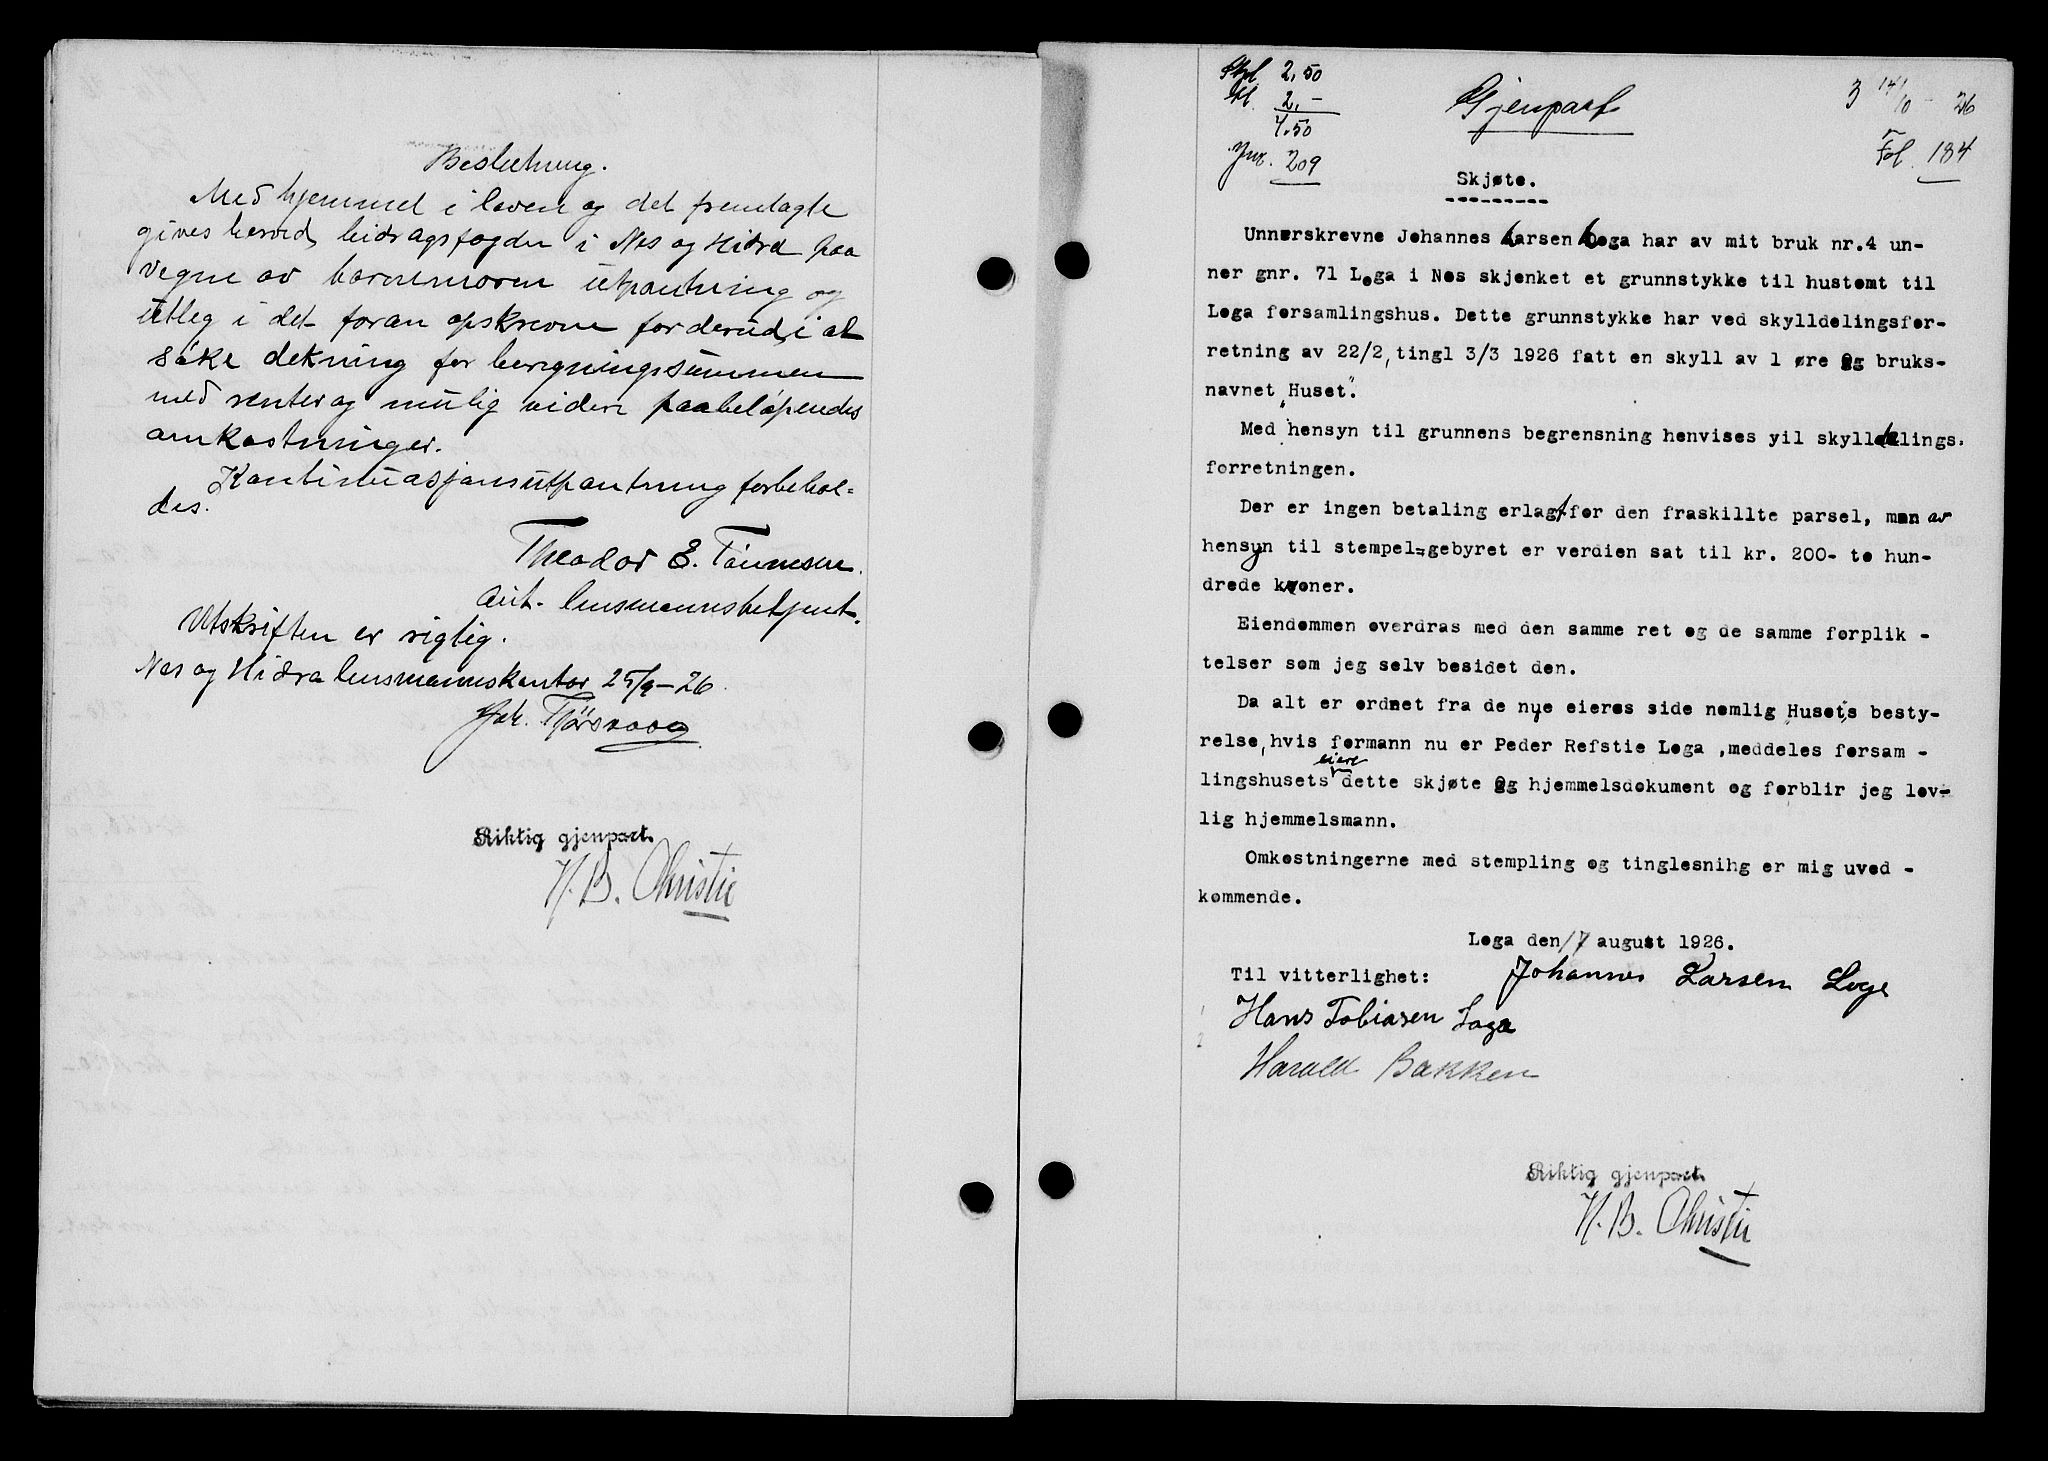 Beslutning.
Med hjemmel i loven og det fremlagte
gives herved bidragsfogden i Nes og Hidra paa
vegne av barnemoren utpantning og
utleg i det foran opskrevne for derved i at
søke dekning for beregningssummen
med renter og mulig videre paabeløpende
omkostninger.
Kontinuasjonsutpantning forbehol=
des.
Theodor E. Tønnesen.
aut. lensmannsbetjent.
Utskriften er rigtig.
Nes og Hidra lensmannskontor 25/9-26
Joh. Tjörsvaag
Riktig gjenpart.
H. B. Christie
2,50
2,-
4.50
Jnr. 209
Gjenpart
3 14/10 - 26
Fol. 184
Skjøte.
Unnerskrevne Johannes Larsen Loga har av mit bruk nr.4 un-
ner gnr. 71 Loga i Nes skjenket et grunnstykke til hustomt til
Loga forsamlingshus. Dette grunnstykke har ved skylldelingsfor-
retning av 22/2, tingl 3/3 1926 fatt en skyll av 1 øre og bruks-
navnet "Huset".
Med hensyn til grunnens begrensning henvises yil skylldelings.
forretningen.
Der er ingen betaling erlagt for den fraskillte parsel, men av
hensyn til stempel=gebyret er verdien sat til kr. 200- to hun-
drede kroner.
Eiendommen overdras med den samme ret og de samme forplik -
telser som jeg selv besidet den.
Da alt er ordnet fra de nye eieres side nemlig "Huset"s besty-
relse, hvis formann nu er Peder Refstie Loga ,meddeles forsam -
lingshusets eiere dette skjøte og hjemmelsdokument og forblir jeg lov-
lig hjemmelsmann.
Omkostningerne med stempling og tinglesnihg er mig uved -
kommende.
Loga den 17 august 1926.
Til vitterlighet: Johannes Larsen Loge
Hans Tobiasen Loga
Harald Bakken
Riktig gjenpart.
H. B. Christie